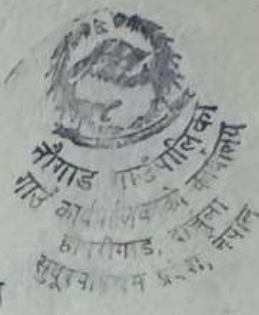 नौगाड गाउँपालिका
गाउँ कार्यपालिकाको कार्यालय
दार्चुला
सुदूरपश्चिम प्रदेश, नेपाल